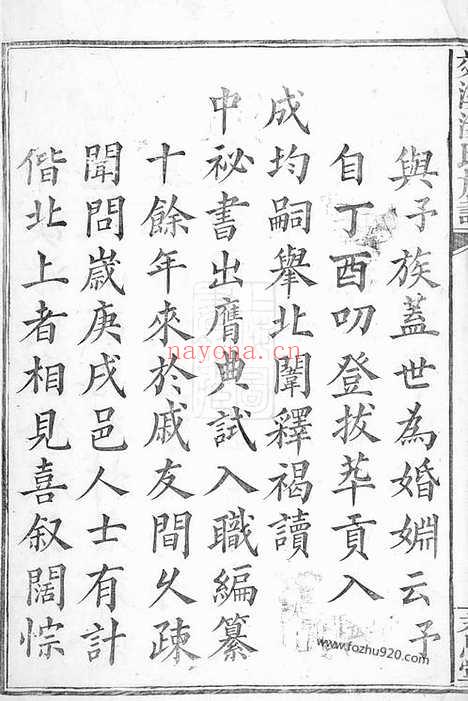 與予族蓋世為婚婣云予
自丁酉叨登拔萃貢入
成均嗣舉北闈釋褐讀
中祕書出膺典試入職編纂
十餘年來於戚友間久疎
聞問嵗庚戌邑人士有計
偕北上者相見喜叙闊悰
nayona.cn
www.fozhu920.com